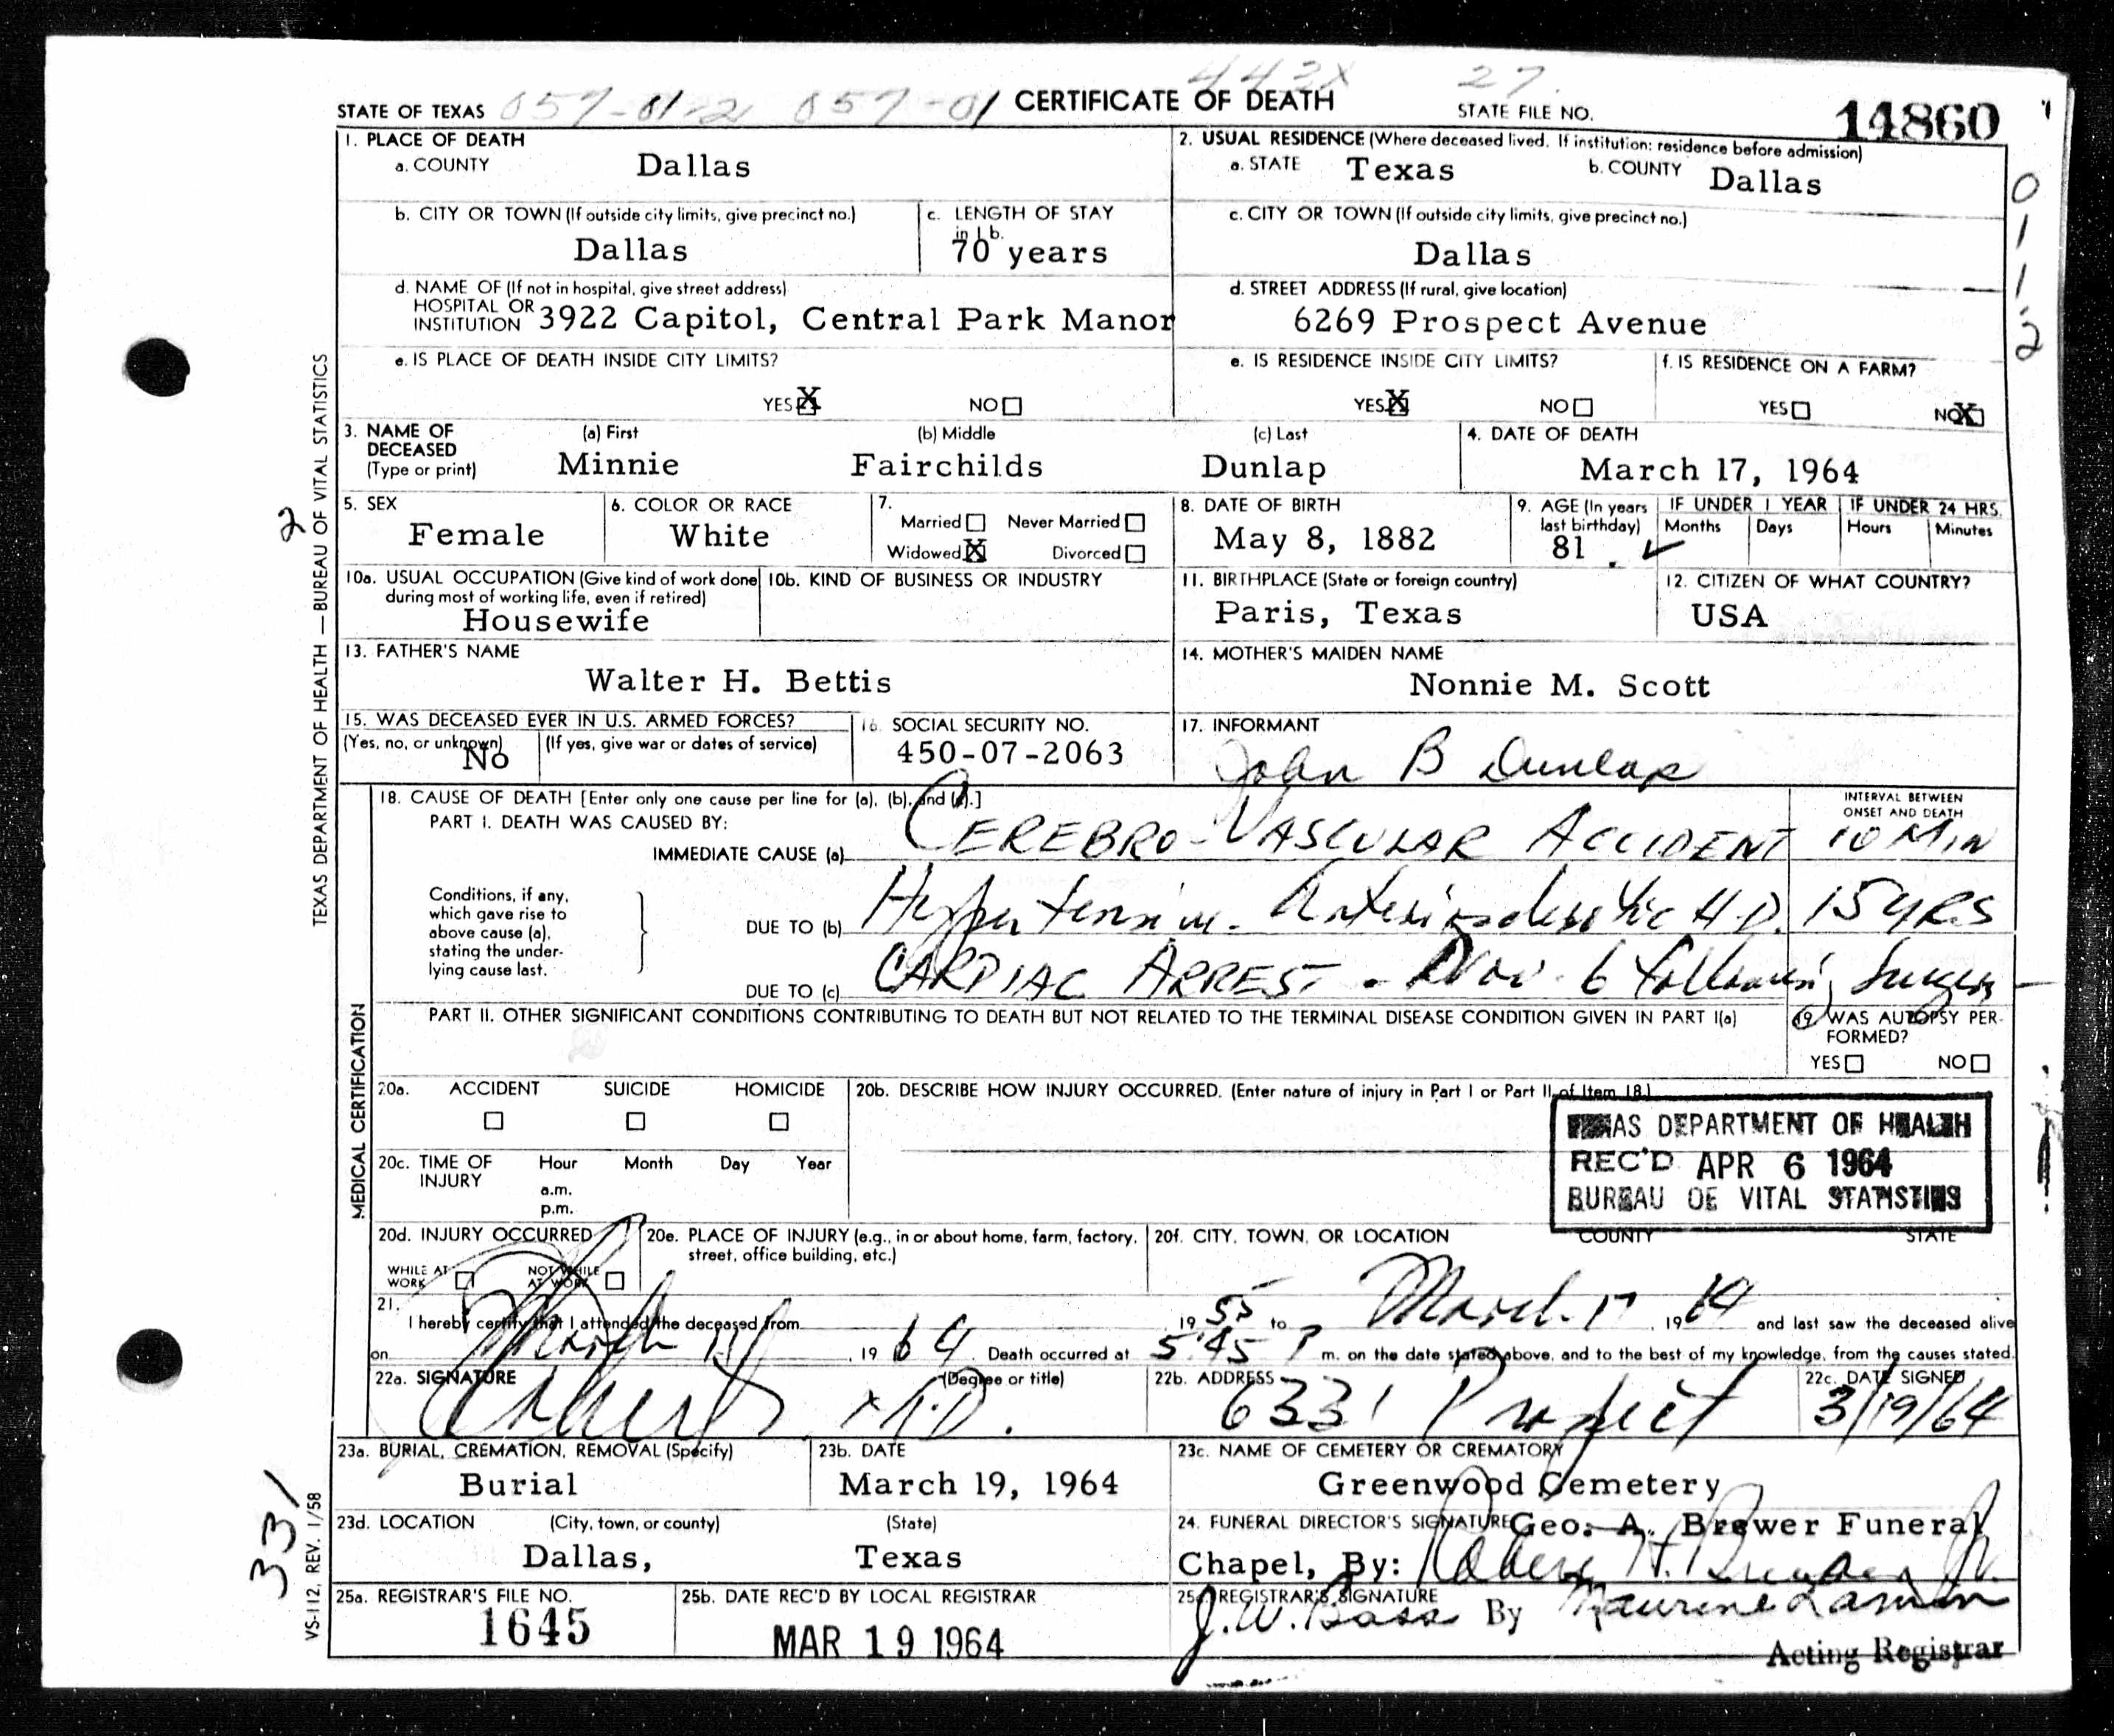 443X 27.
STATE OF TEXAS 057-01-2 057-01 CERTIFICATE OF DEATH STATE FILE NO. 14860
1. PLACE OF DEATH
a. COUNTY Dallas
2. USUAL RESIDENCE (Where deceased lived. If institution: residence before admission)
a. STATE Texas b. COUNTY Dallas
b. CITY OR TOWN (If outside city limits, give precinct no.)
Dallas
c. LENGTH OF STAY
in 1b.
70 years
c. CITY OR TOWN (If outside city limits, give precinct no.)
Dallas
d. NAME OF (If not in hospital, give street address)
HOSPITAL OR
INSTITUTION 3922 Capitol, Central Park Manor
d. STREET ADDRESS (If rural, give location)
6269 Prospect Avenue
e. IS PLACE OF DEATH INSIDE CITY LIMITS?
YES X NO
e. IS RESIDENCE INSIDE CITY LIMITS?
YES X NO
f. IS RESIDENCE ON A FARM?
YES NO X
0
1
1
2
3. NAME OF
DECEASED
(Type or print)
(a) First (b) Middle (c) Last
Minnie Fairchilds Dunlap
4. DATE OF DEATH
March 17, 1964
5. SEX
Female
6. COLOR OR RACE
White
7.
Married Never Married
Widowed X Divorced
8. DATE OF BIRTH
May 8, 1882
9. AGE (In years
last birthday)
81
IF UNDER 1 YEAR
Months Days
IF UNDER 24 HRS.
Hours Minutes
10a. USUAL OCCUPATION (Give kind of work done
during most of working life, even if retired)
Housewife
10b. KIND OF BUSINESS OR INDUSTRY
11. BIRTHPLACE (State or foreign country)
Paris, Texas
12. CITIZEN OF WHAT COUNTRY?
USA
13. FATHER'S NAME
Walter H. Bettis
14. MOTHER'S MAIDEN NAME
Nonnie M. Scott
15. WAS DECEASED EVER IN U.S. ARMED FORCES?
(Yes, no, or unknown) (If yes, give war or dates of service)
No
16. SOCIAL SECURITY NO.
450-07-2063
17. INFORMANT
John B Dunlap
18. CAUSE OF DEATH [Enter only one cause per line for (a), (b), and (c).]
PART I. DEATH WAS CAUSED BY:
IMMEDIATE CAUSE (a) CEREBRO-VASCULAR ACCIDENT
INTERVAL BETWEEN
ONSET AND DEATH
10 MIN
Conditions, if any,
which gave rise to
above cause (a),
stating the under-
lying cause last.
DUE TO (b) Hypertensive - Arteriosclerotic H.D. 15 YRS
DUE TO (c) CARDIAC ARREST - Nov. 6 following Surgery
PART II. OTHER SIGNIFICANT CONDITIONS CONTRIBUTING TO DEATH BUT NOT RELATED TO THE TERMINAL DISEASE CONDITION GIVEN IN PART I(a)
19. WAS AUTOPSY PER-
FORMED?
YES NO
20a. ACCIDENT SUICIDE HOMICIDE
20b. DESCRIBE HOW INJURY OCCURRED. (Enter nature of injury in Part I or Part II of Item 18.)
TEXAS DEPARTMENT OF HEALTH
REC'D APR 6 1964
BUREAU OF VITAL STATISTICS
20c. TIME OF
INJURY
Hour Month Day Year
a.m.
p.m.
20d. INJURY OCCURRED
WHILE AT
WORK
NOT WHILE
AT WORK
20e. PLACE OF INJURY (e.g., in or about home, farm, factory,
street, office building, etc.)
20f. CITY, TOWN, OR LOCATION COUNTY STATE
21.
I hereby certify that I attended the deceased from 19 55 to March 17, 19 64 and last saw the deceased alive
on March 17, 19 64. Death occurred at 5:45 P m. on the date stated above, and to the best of my knowledge, from the causes stated.
22a. SIGNATURE (Degree or title)
M.D.
22b. ADDRESS
6331 Prospect
22c. DATE SIGNED
3/19/64
23a. BURIAL, CREMATION, REMOVAL (Specify)
Burial
23b. DATE
March 19, 1964
23c. NAME OF CEMETERY OR CREMATORY
Greenwood Cemetery
23d. LOCATION (City, town, or county) (State)
Dallas, Texas
24. FUNERAL DIRECTOR'S SIGNATURE Geo. A. Brewer Funeral
Chapel, By: Robert H. Brewer Jr.
25a. REGISTRAR'S FILE NO.
1645
25b. DATE REC'D BY LOCAL REGISTRAR
MAR 19 1964
25c. REGISTRAR'S SIGNATURE
J.W. Bass By Maurine
Acting Registrar
TEXAS DEPARTMENT OF HEALTH — BUREAU OF VITAL STATISTICS
2
MEDICAL CERTIFICATION
VS-112, REV. 1/58
331